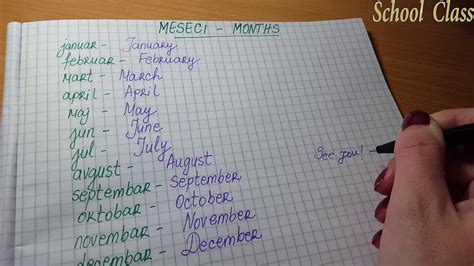 School Class
MESECI - MONTHS
januar - January
februar - February
mart - March
april - April
maj - May
jun - June
jul - July
avgust - August
septembar - September
oktobar - October
novembar - November
decembar - December
See you!